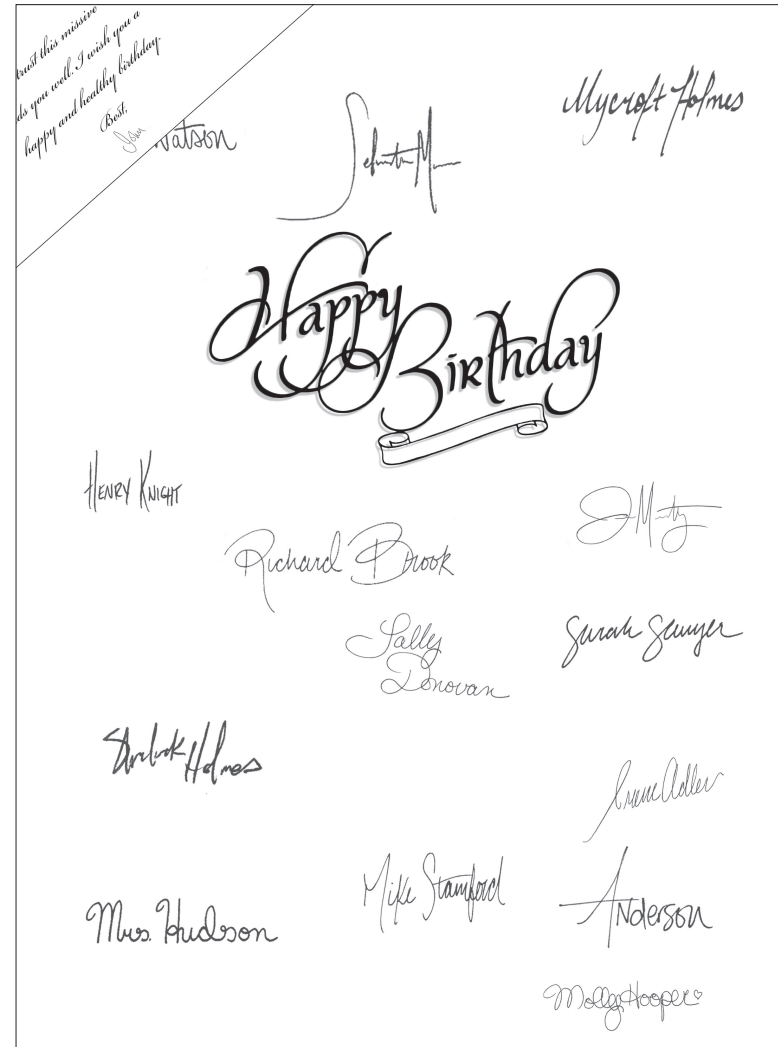 trust this missive
ds you well. I wish you a
happy and healthy birthday.
Best,
John
Watson
Mycroft Holmes
Happy
Birthday
Henry Knight
Richard Brook
Sally
Donovan
Sarah Sawyer
Sherlock Holmes
Irene Adler
Mike Stamford
Anderson
Mrs. Hudson
Molly Hooper